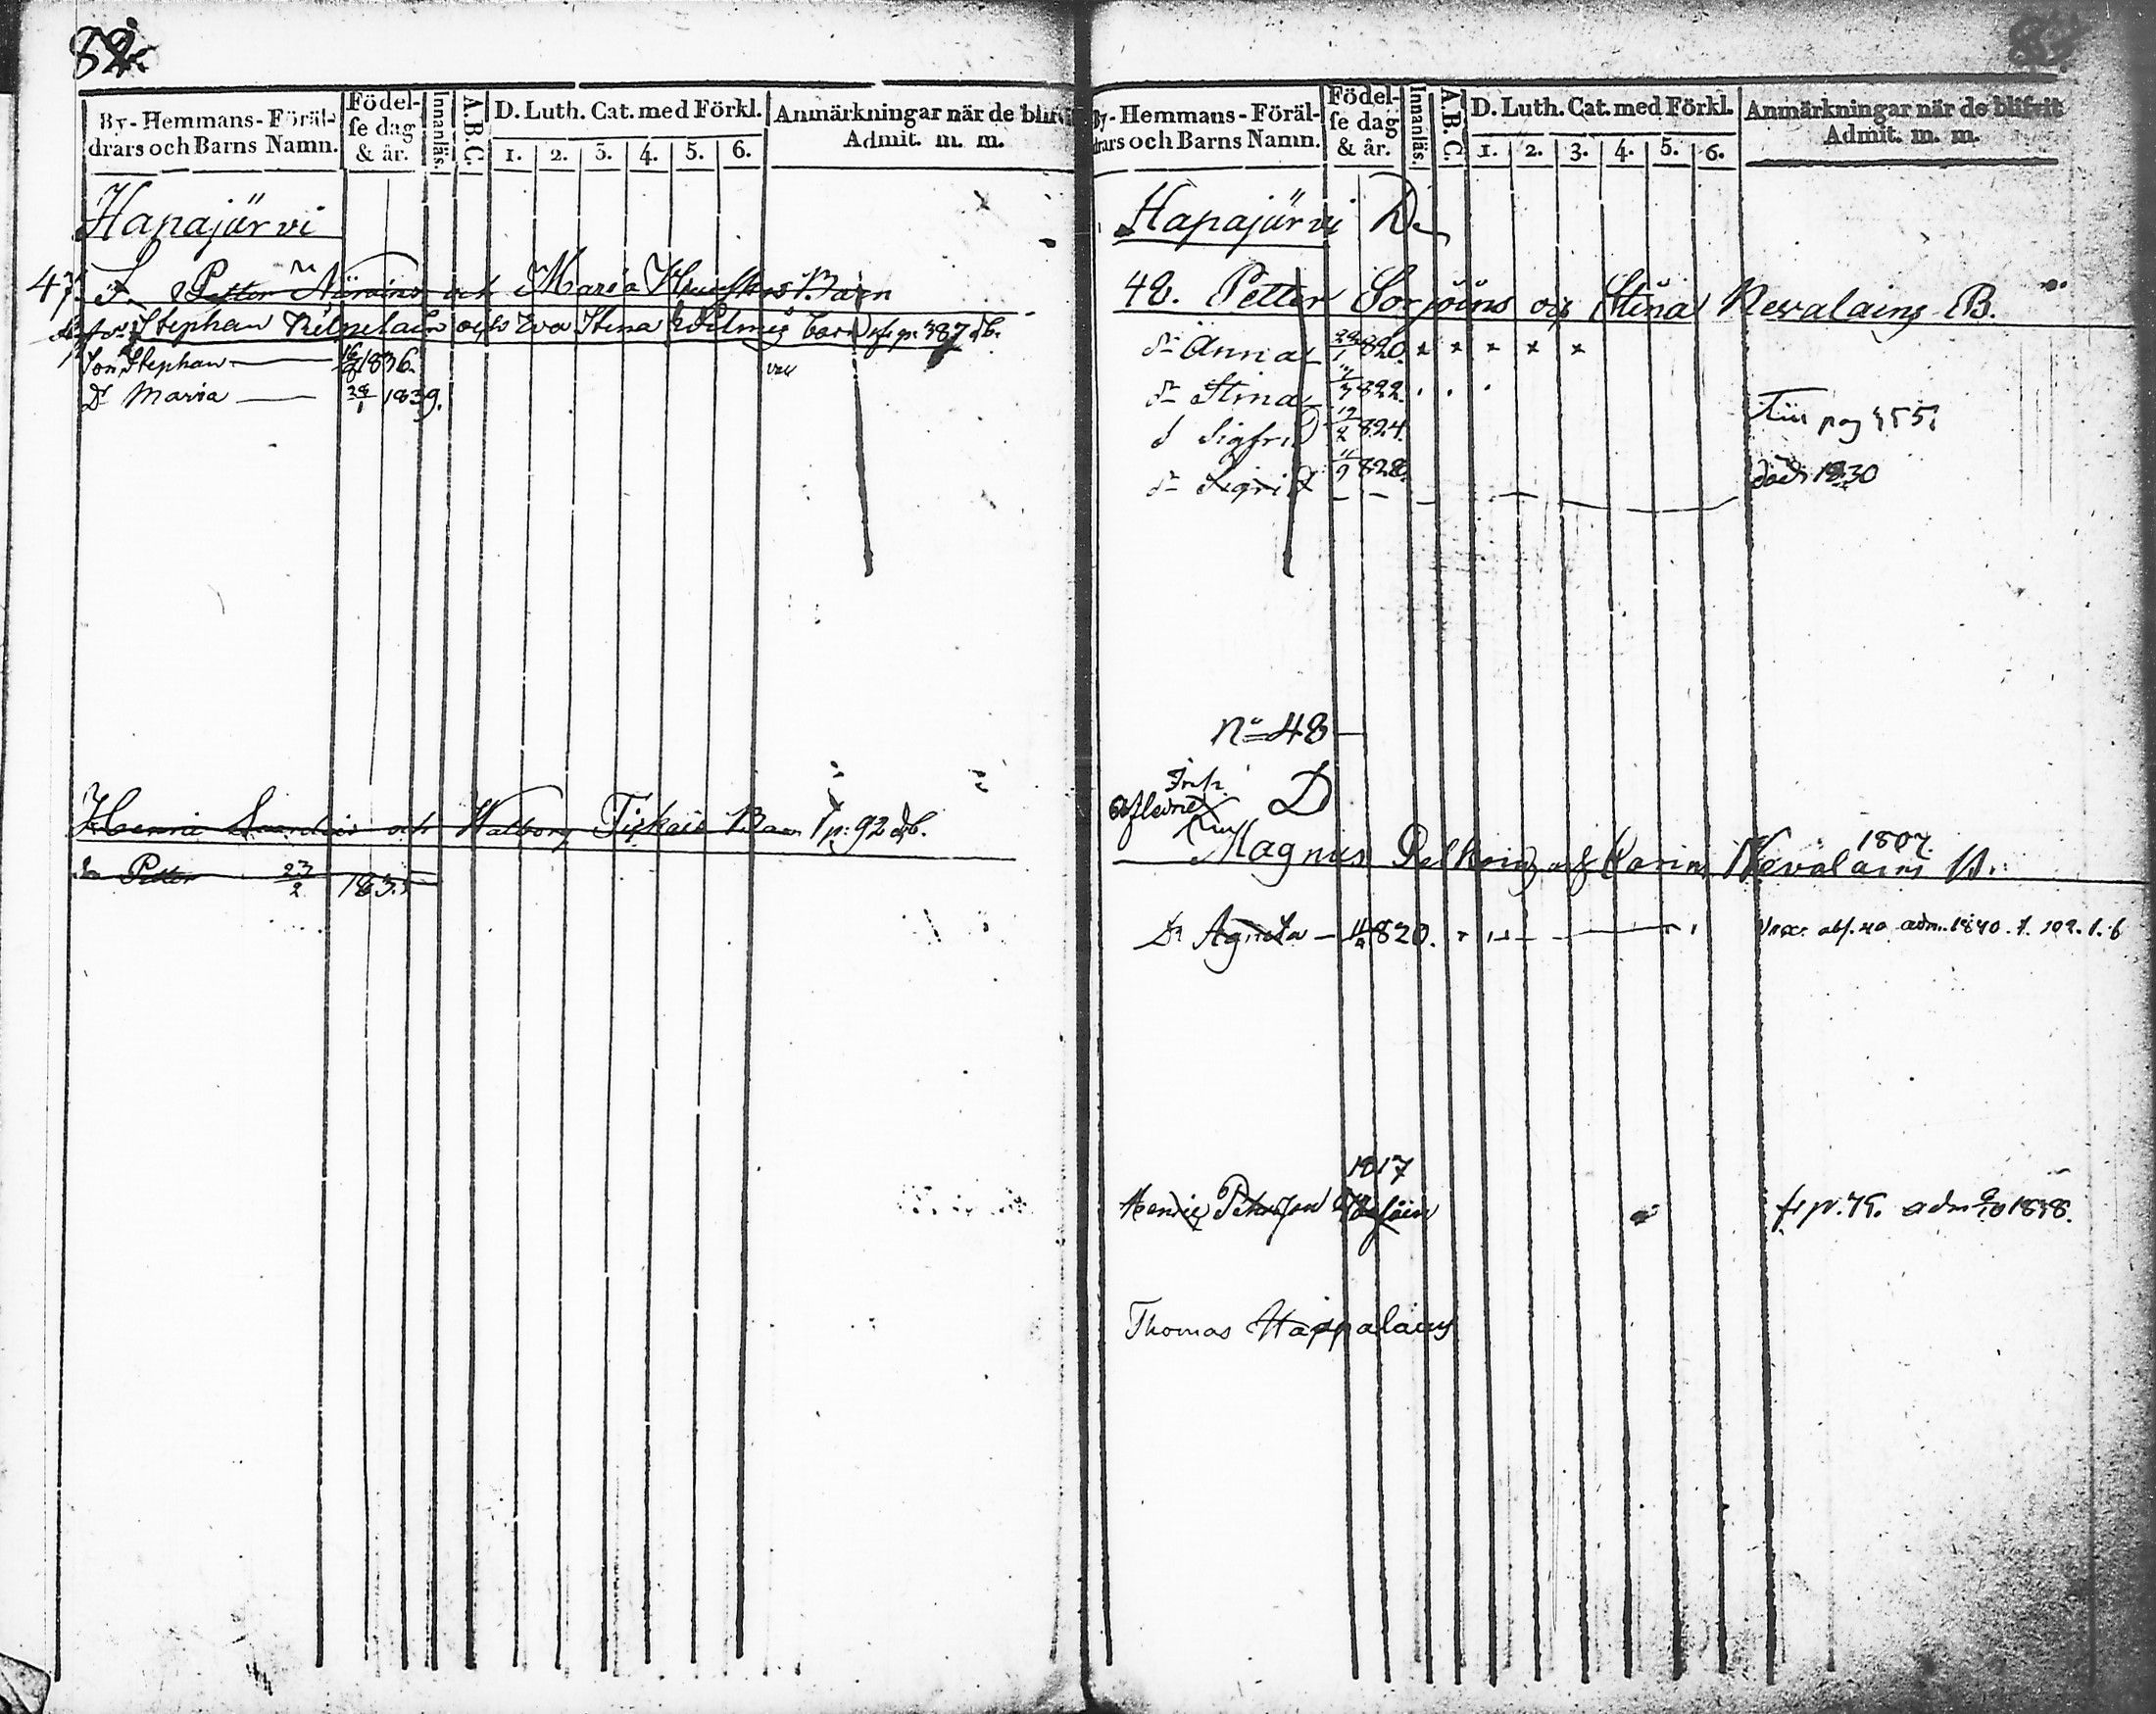 82.
By-Hemmans-Föräl-
drars och Barns Namn.
Födel-
se dag
& år.
Innanläs.
A.B.C.
D. Luth. Cat. med Förkl.
1. 2. 3. 4. 5. 6.
Anmärkningar när de blifvit
Admit. m. m.
Hapajärvi
47. Petter och Maria Barn
Stephan Kilpelain och Eva Stina barn fr. p. 387 db.
Son Stephan 16/8 1836.
Dr Maria 28/1 1839.
vac
Henric och Walborg p: 92 db.
Petter 23/2 183
83
By-Hemmans-Föräl-
drars och Barns Namn.
Födel-
se dag
& år.
Innanläs.
A.B.C.
D. Luth. Cat. med Förkl.
1. 2. 3. 4. 5. 6.
Anmärkningar när de blifvit
Admit. m. m.
Hapajärvi D.
48. Petter Sorjoins och Stina Nevalains B.
dr Anna 29/1 820. x x x x x
dr Stina 822.
S Sigfrid 17/2 824. pag 455
dr Sigrid 11/9 828. död 1830
No 48
Inh. D
Aflidne
1807.
Magnus och Karin Nevalains B.
Dr Agneta 820. adm. 1840. f. 109. 1. 6
1817
Henric Petersson fr p. 75. adm 1838.
Thomas Happalains